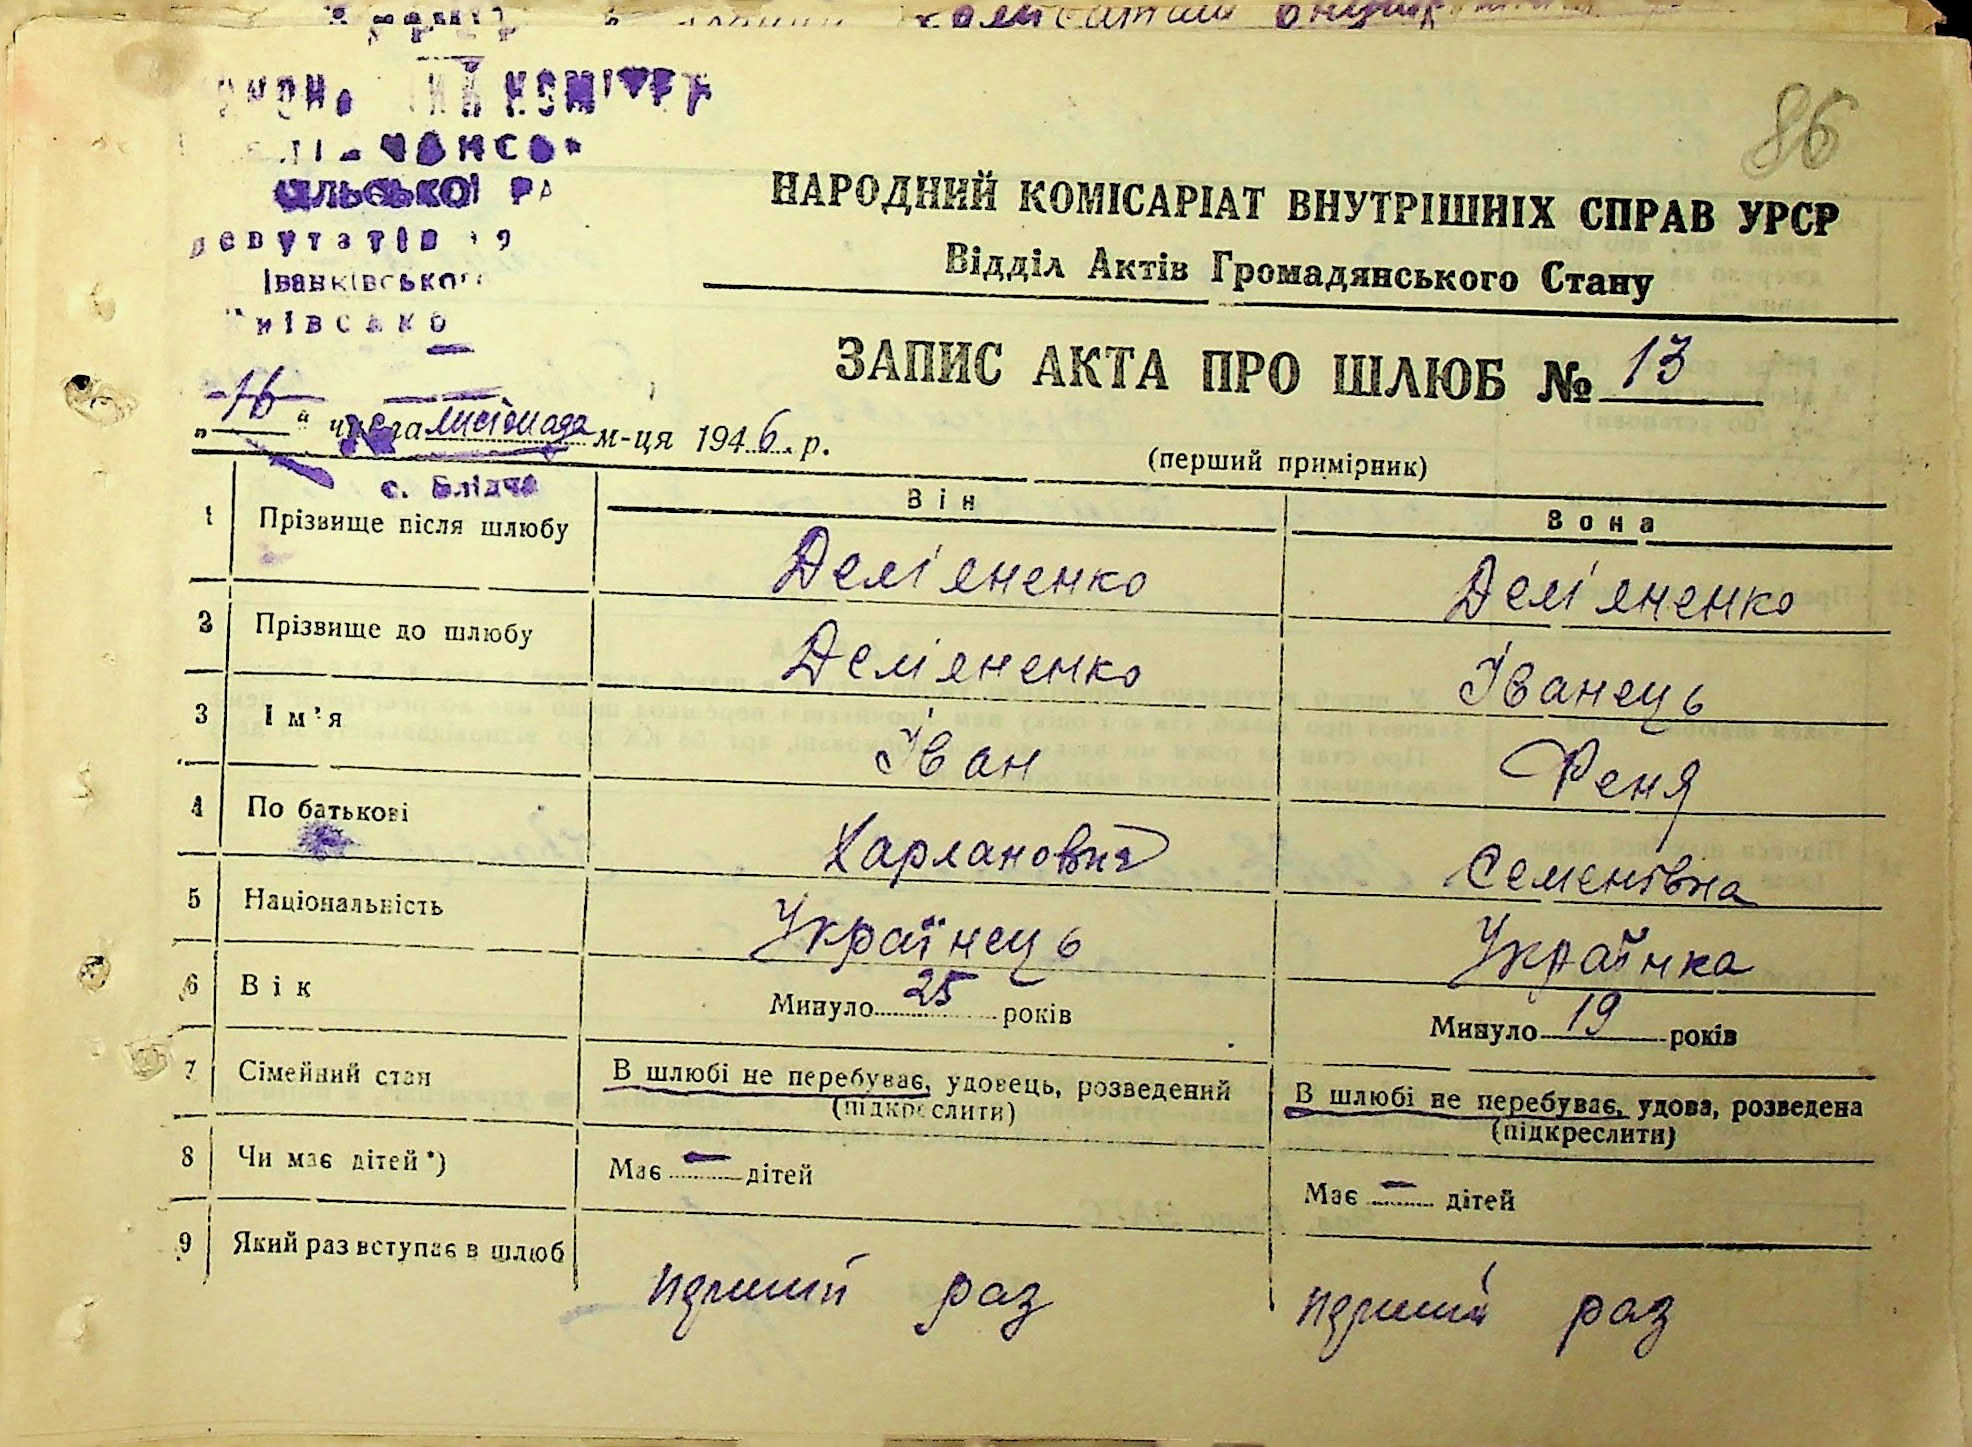 86
КОМІТЕТ
сільської
депутатів
Іванківського
с. Блідча
НАРОДНИЙ КОМІСАРІАТ ВНУТРІШНІХ СПРАВ УРСР
Відділ Актів Громадянського Стану
ЗАПИС АКТА ПРО ШЛЮБ № 13
„16“ числа листопада м-ця 1946 р.
(перший примірник)
Він Вона
1 Прізвище після шлюбу Дем'яненко Дем'яненко
2 Прізвище до шлюбу Дем'яненко Іванець
3 Ім'я Іван Феня
4 По батькові Харланович Семенівна
5 Національність Українець Українка
6 Вік Минуло 25 років Минуло 19 років
7 Сімейний стан В шлюбі не перебуває, удовець, розведений (підкреслити) В шлюбі не перебуває, удова, розведена (підкреслити)
8 Чи має дітей*) Має — дітей Має — дітей
9 Який раз вступає в шлюб перший раз перший раз